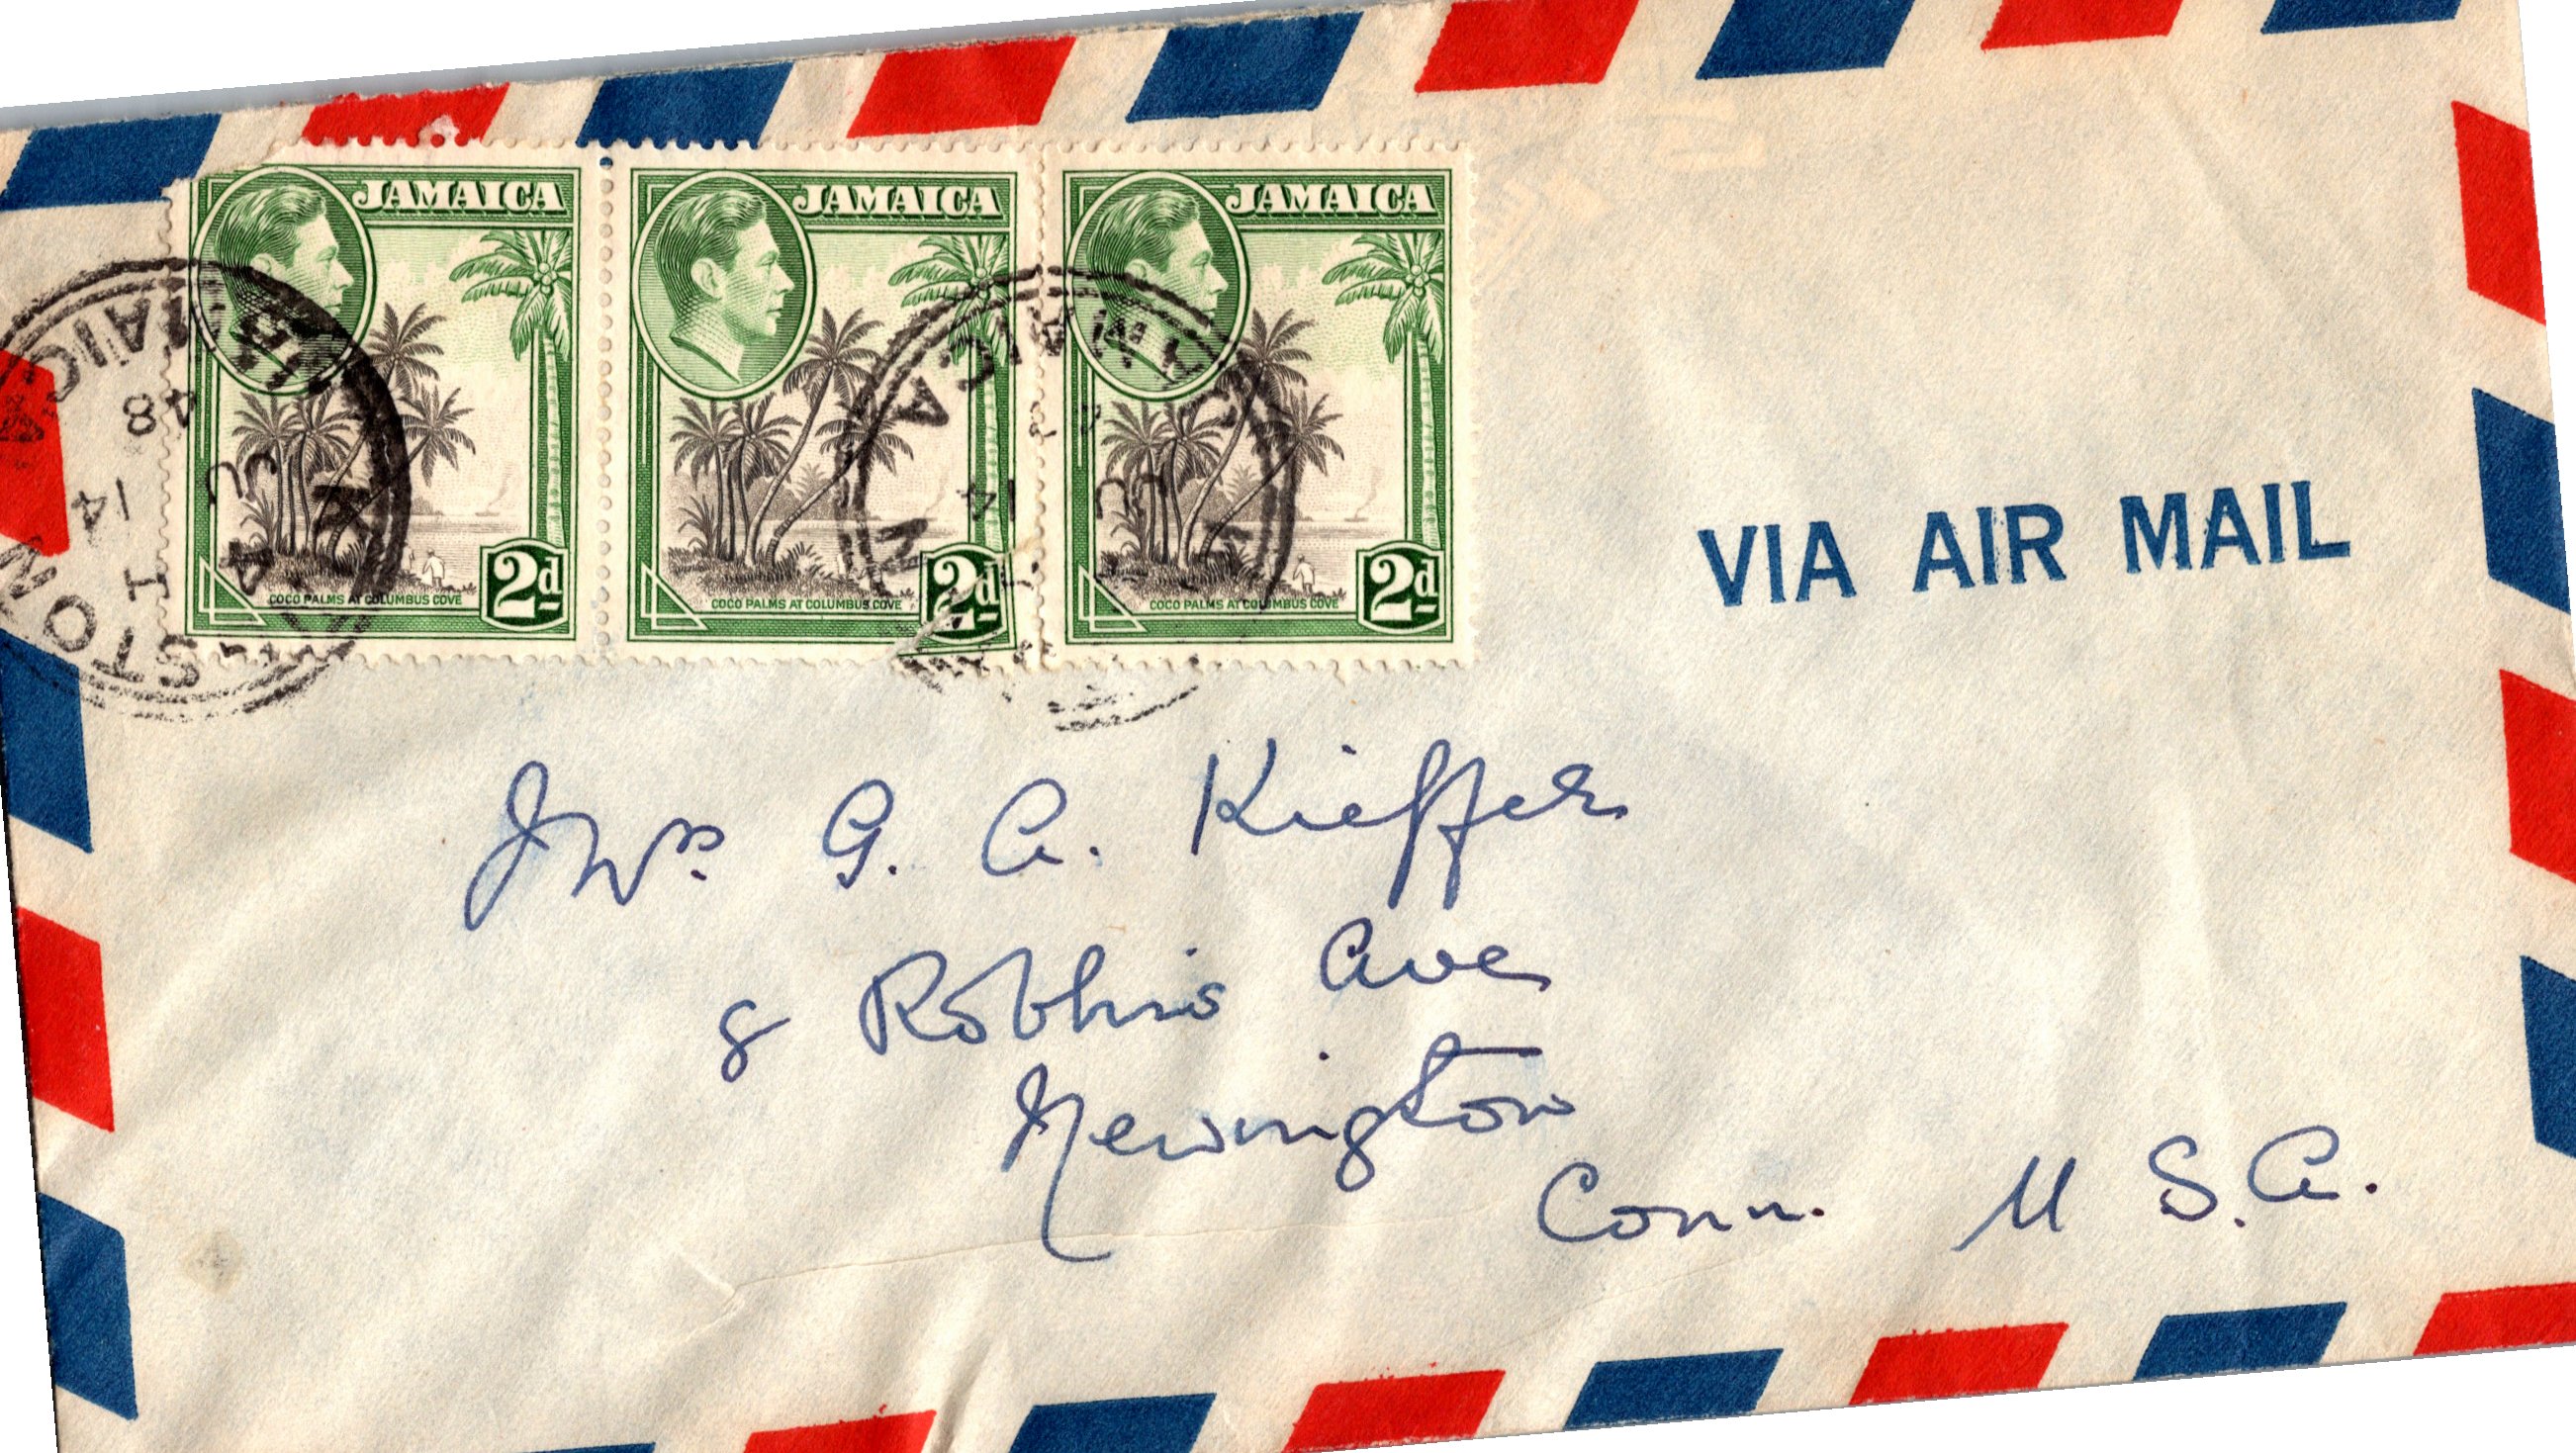 JAMAICA
COCO PALMS AT COLUMBUS COVE
2d
JAMAICA
COCO PALMS AT COLUMBUS COVE
2d
JAMAICA
COCO PALMS AT COLUMBUS COVE
2d
JAMAICA
14 JU
48
JAMAICA
14 JU
VIA AIR MAIL
Mrs. G. A. Kieffer
8 Robbins Ave
Newington
Conn. U S. A.